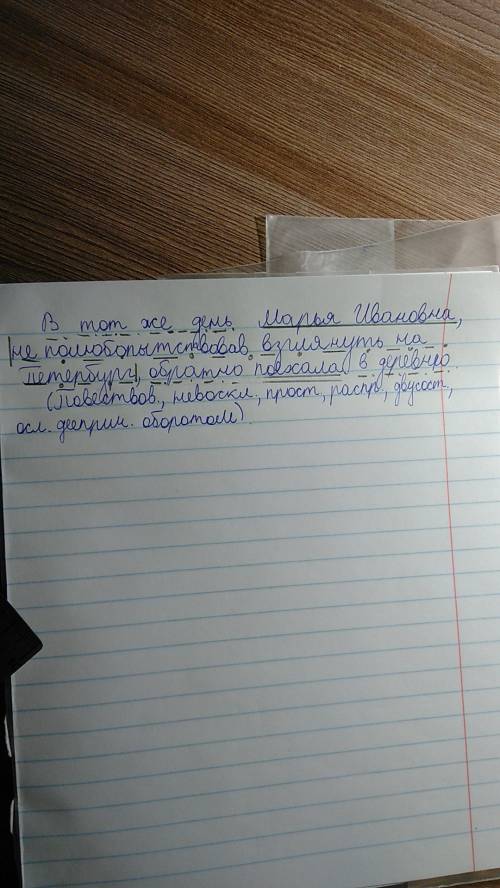 В тот же день Марья Ивановна,
не полюбопытствовав взглянуть на
Петербург, обратно поехала в деревню
(Повествов., невоскл., прост., распр., двусост.,
осл. дееприч. оборотом).